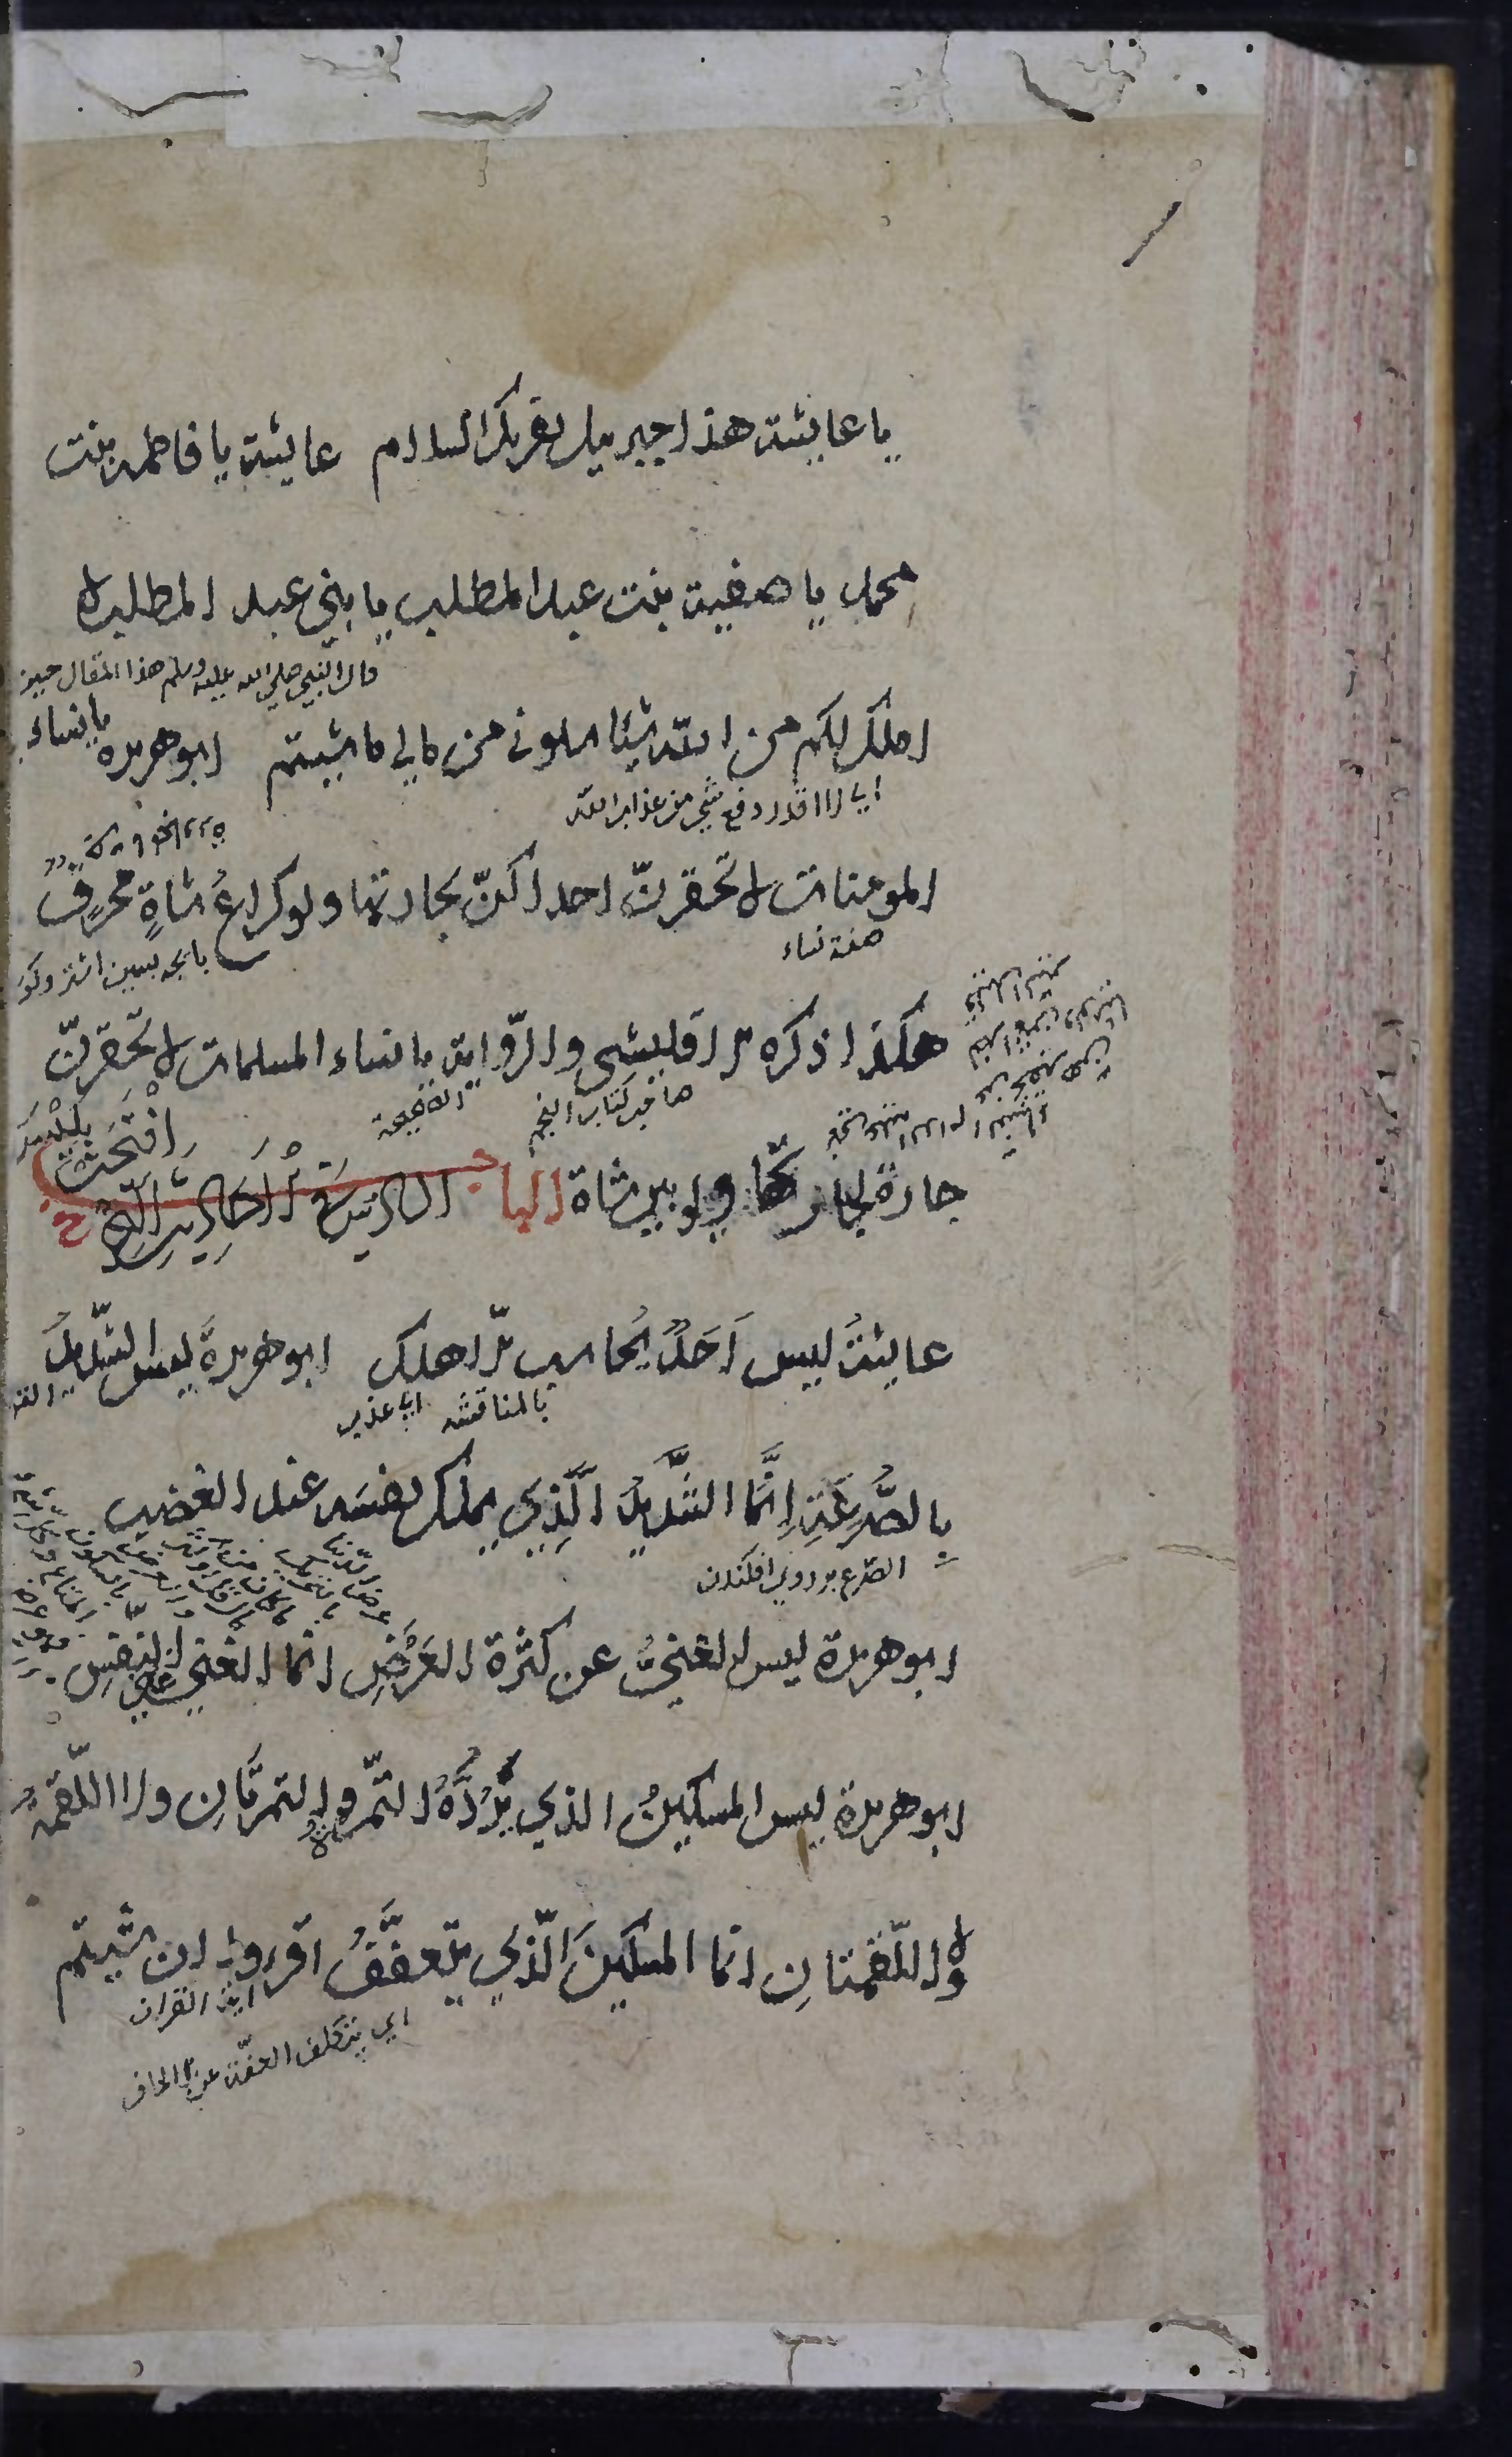 يا عايشة هذا جبريل يقريك السلام عايشة يا فاطمة بنت
محمد يا صفية بنت عبد المطلب يا بني عبد المطلب لا
قال النبي صلي الله عليه وسلم هذا المقال حين
املك لكم من الله شيئا سلوني من مالي ما شيتم ابو هريرة يا نساء
اي لا اقدر دفع شي من عذاب الله
المومنات لا تحقرنّ احداكنّ لجارتها ولو كراعُ شاةٍ محرقٌ
صفة نساء
هكذا ذكره الاقليشي والرّواية يا نساء المسلمات لا تحقرنّ
صاحب كتاب النجم
الصحيحة
جارة لجارتها ولو فرسن شاة الباب السادس في الاحاديث التي افتتحت بليس
عايشة ليس اَحَدٌ يُحاسب الّا هلك ابو هريرةَ ليس الشّديدُ
بالمناقشة اي عذب
بِالصُّرَعَةِ اِنَّمَا الشَّدِيدُ الَّذِي يملك نفسَه عند الغضب
الصرع بر روي افكندن
ابو هريرة ليس الغنيُّ عن كثرة العَرَضِ انما الغني غني النفسِ
ابو هريرة ليس المسكينُ الذي تَرُدُّهُ التّمرة والتمرتَانِ ولا اللّقمةُ
ولا اللّقمتانِ انما المسكينَ الّذي يتعفَّفُ اقروا ان شيتم
اية القران
اي يتكلف العفّة عن الحاف